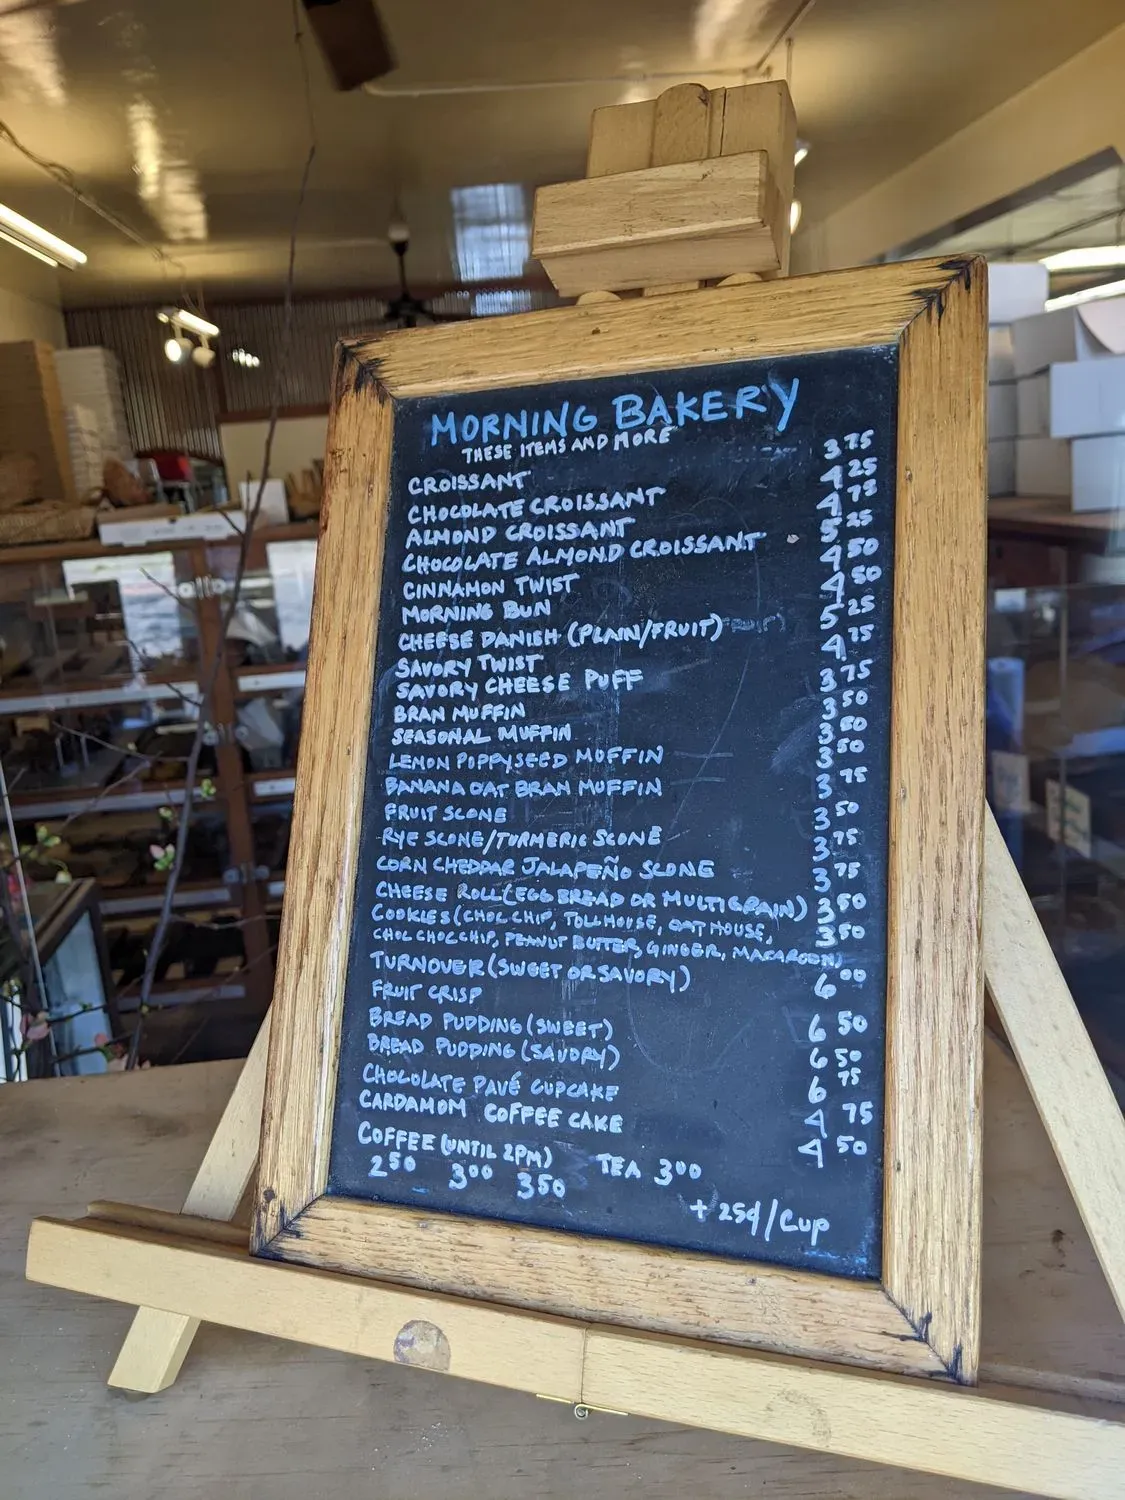 MORNING BAKERY
THESE ITEMS AND MORE
CROISSANT 3 75
CHOCOLATE CROISSANT 4 25
ALMOND CROISSANT 4 75
CHOCOLATE ALMOND CROISSANT 5 25
CINNAMON TWIST 4 50
MORNING BUN 4 50
CHEESE DANISH (PLAIN/FRUIT) 5 25
SAVORY TWIST 4 75
SAVORY CHEESE PUFF 3 75
BRAN MUFFIN 3 50
SEASONAL MUFFIN 3 50
LEMON POPPYSEED MUFFIN 3 50
BANANA OAT BRAN MUFFIN 3 75
FRUIT SCONE 3 50
RYE SCONE/TURMERIC SCONE 3 75
CORN CHEDDAR JALAPEÑO SCONE 3 75
CHEESE ROLL (EGG BREAD OR MULTIGRAIN) 3 50
COOKIES (CHOC CHIP, TOLLHOUSE, OATHOUSE,
CHOC CHOC CHIP, PEANUT BUTTER, GINGER, MACAROON) 3 50
TURNOVER (SWEET OR SAVORY) 6 00
FRUIT CRISP 6 50
BREAD PUDDING (SWEET) 6 50
BREAD PUDDING (SAVORY) 6 75
CHOCOLATE PAVÉ CUPCAKE 4 75
CARDAMOM COFFEE CAKE 4 50
COFFEE (UNTIL 2PM) TEA 3 00
2 50 3 00 3 50
+ 25¢/Cup